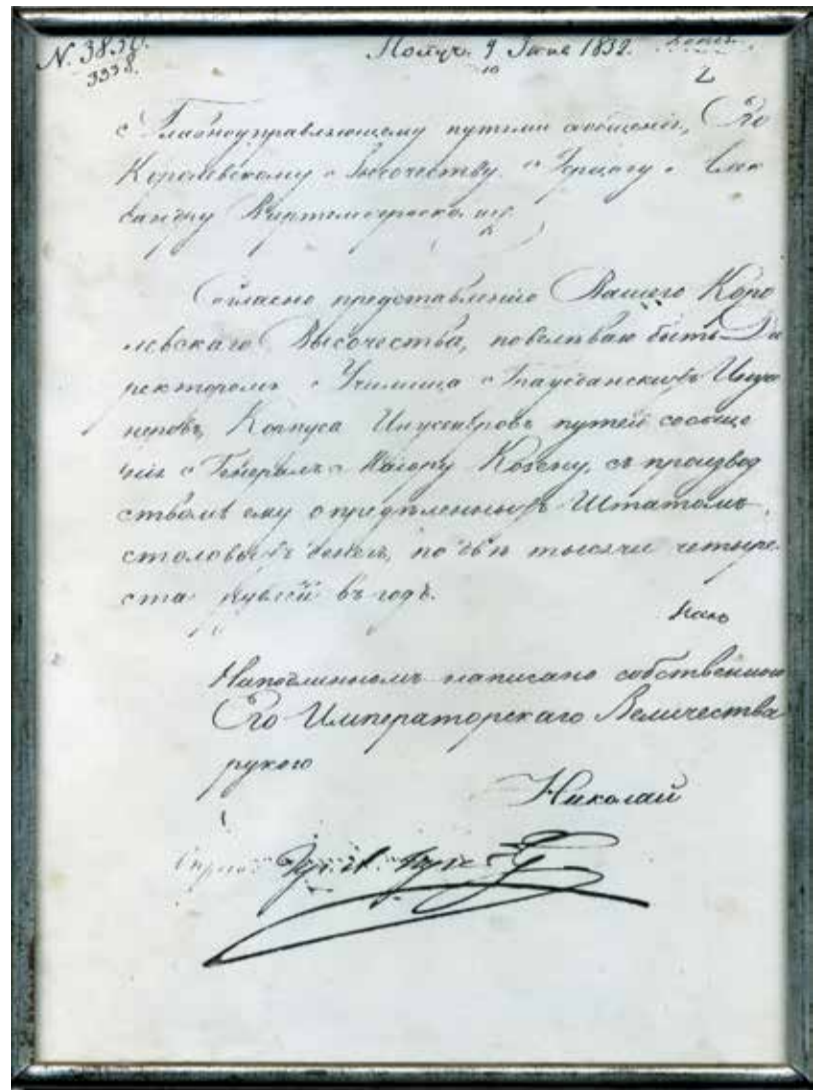 N. 3830.
3338.
Получ. 9 Іюня 1832.
10
2
Главноуправляющему путями сообщенія, Его
Королевскому Высочеству Герцогу Алек
сандру Виртембергскому
Согласно представленію Вашего Коро
левскаго Высочества, повелѣваю быть Ди
ректоромъ Училища Гражданскихъ Инже
неровъ, Корпуса Инженеровъ путей сообще
нія Генералъ Маіору Козену, съ производ
ствомъ ему опредѣленныхъ Штатомъ,
столовыхъ денегъ, по двѣ тысячи четыре
ста рублей въ годъ.
На подлинномъ написано собственною
Его Императорскаго Величества
рукою
Николай